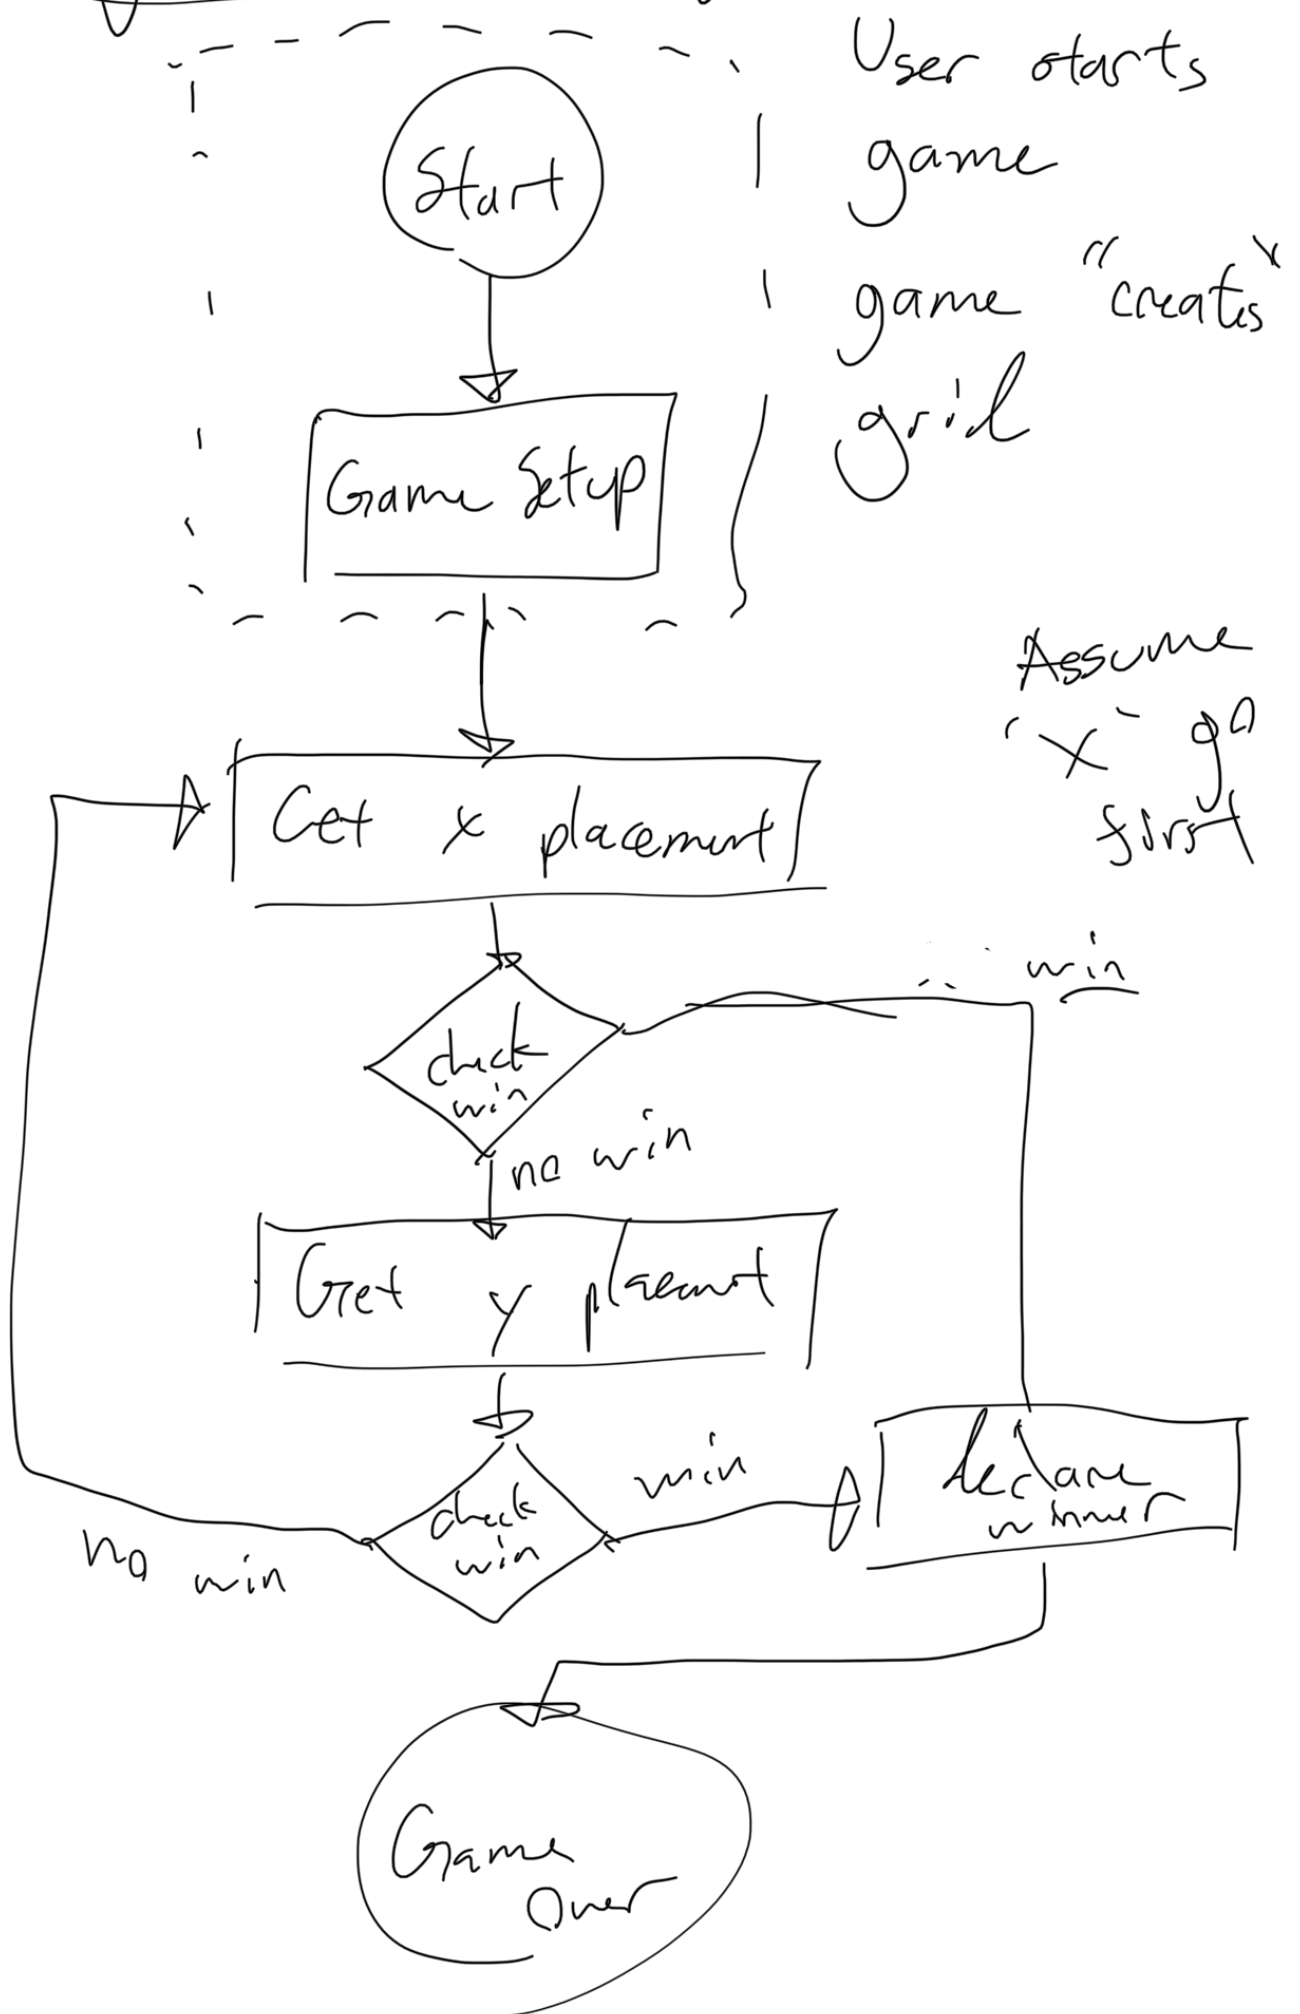 User starts
game
Start
game "creates"
grid
Game Setup
Assume
"x" go
first
Get x placement
win
check
win
no win
Get y placement
check
win
win
no win
declare
winner
Game
Over